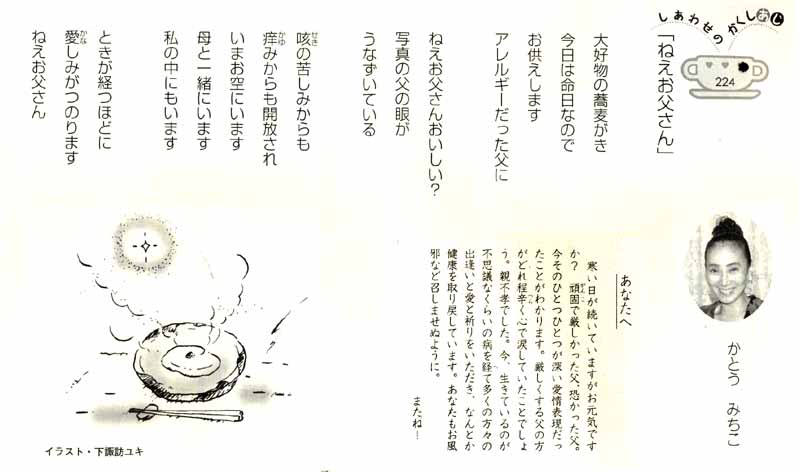 しあわせのかくしあじ
224
「ねえお父さん」
かとう みちこ
大好物の蕎麦がき
今日は命日なので
お供えします
アレルギーだった父に
ねえお父さんおいしい？
写真の父の眼が
うなずいている
咳の苦しみからも
痒みからも開放され
いまお空にいます
母と一緒にいます
私の中にもいます
ときが経つほどに
愛しみがつのります
ねえお父さん
あなたへ
寒い日が続いていますがお元気です
か？ 頑固で厳しかった父。恐かった父。
今そのひとつひとつが深い愛情表現だっ
たことがわかります。厳しくする父の方
がどれ程辛く心で涙していたことでしょ
う。親不孝でした。今、生きているのが
不思議なくらいの病を経て多くの方々の
出逢いと愛と祈りをいただき、なんとか
健康を取り戻しています。あなたもお風
邪など召しませぬように。
またね…
イラスト・下諏訪ユキ